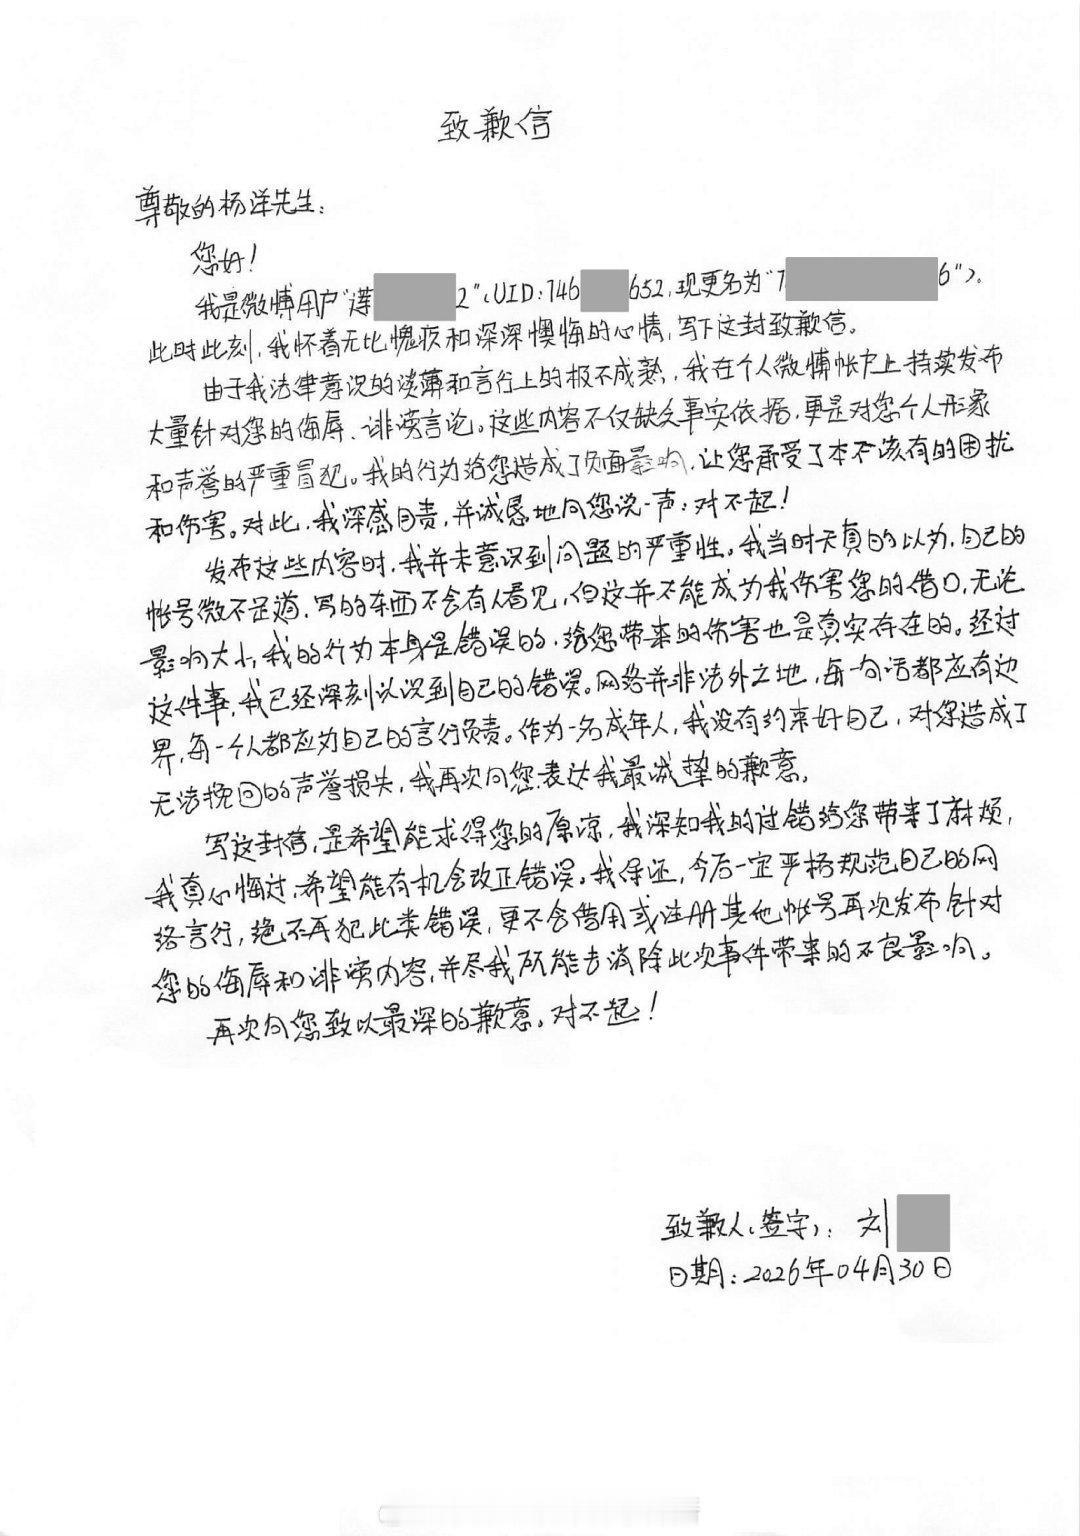 致歉信
尊敬的杨洋先生:
您好!
我是微博用户"谨 2"(UID:746 652,现更名为"1 6")。
此时此刻,我怀着无比愧疚和深深懊悔的心情,写下这封致歉信。
由于我法律意识的淡薄和言行上的极不成熟,我在个人微博帐户上持续发布
大量针对您的侮辱、诽谤言论。这些内容不仅缺乏事实依据,更是对您个人形象
和声誉的严重冒犯。我的行为给您造成了负面影响,让您承受了本不该有的困扰
和伤害。对此,我深感自责,并诚恳地向您说一声:对不起!
发布这些内容时,我并未意识到问题的严重性。我当时天真的以为,自己的
帐号微不足道,写的东西不会有人看见,但这并不能成为我伤害您的借口,无论
影响大小,我的行为本身是错误的,给您带来的伤害也是真实存在的。经过
这件事,我已经深刻认识到自己的错误。网络并非法外之地,每一句话都应有边
界,每一个人都应为自己的言行负责。作为一名成年人,我没有约束好自己,对您造成了
无法挽回的声誉损失,我再次向您表达我最诚挚的歉意。
写这封信,是希望能求得您的原谅,我深知我的过错给您带来了麻烦,
我真心悔过,希望能有机会改正错误。我保证,今后一定严格规范自己的网
络言行,绝不再犯此类错误,更不会借用或注册其他帐号再次发布针对
您的侮辱和诽谤内容,并尽我所能去消除此次事件带来的不良影响。
再次向您致以最深的歉意。对不起!
致歉人(签字):刘
日期:2026年04月30日